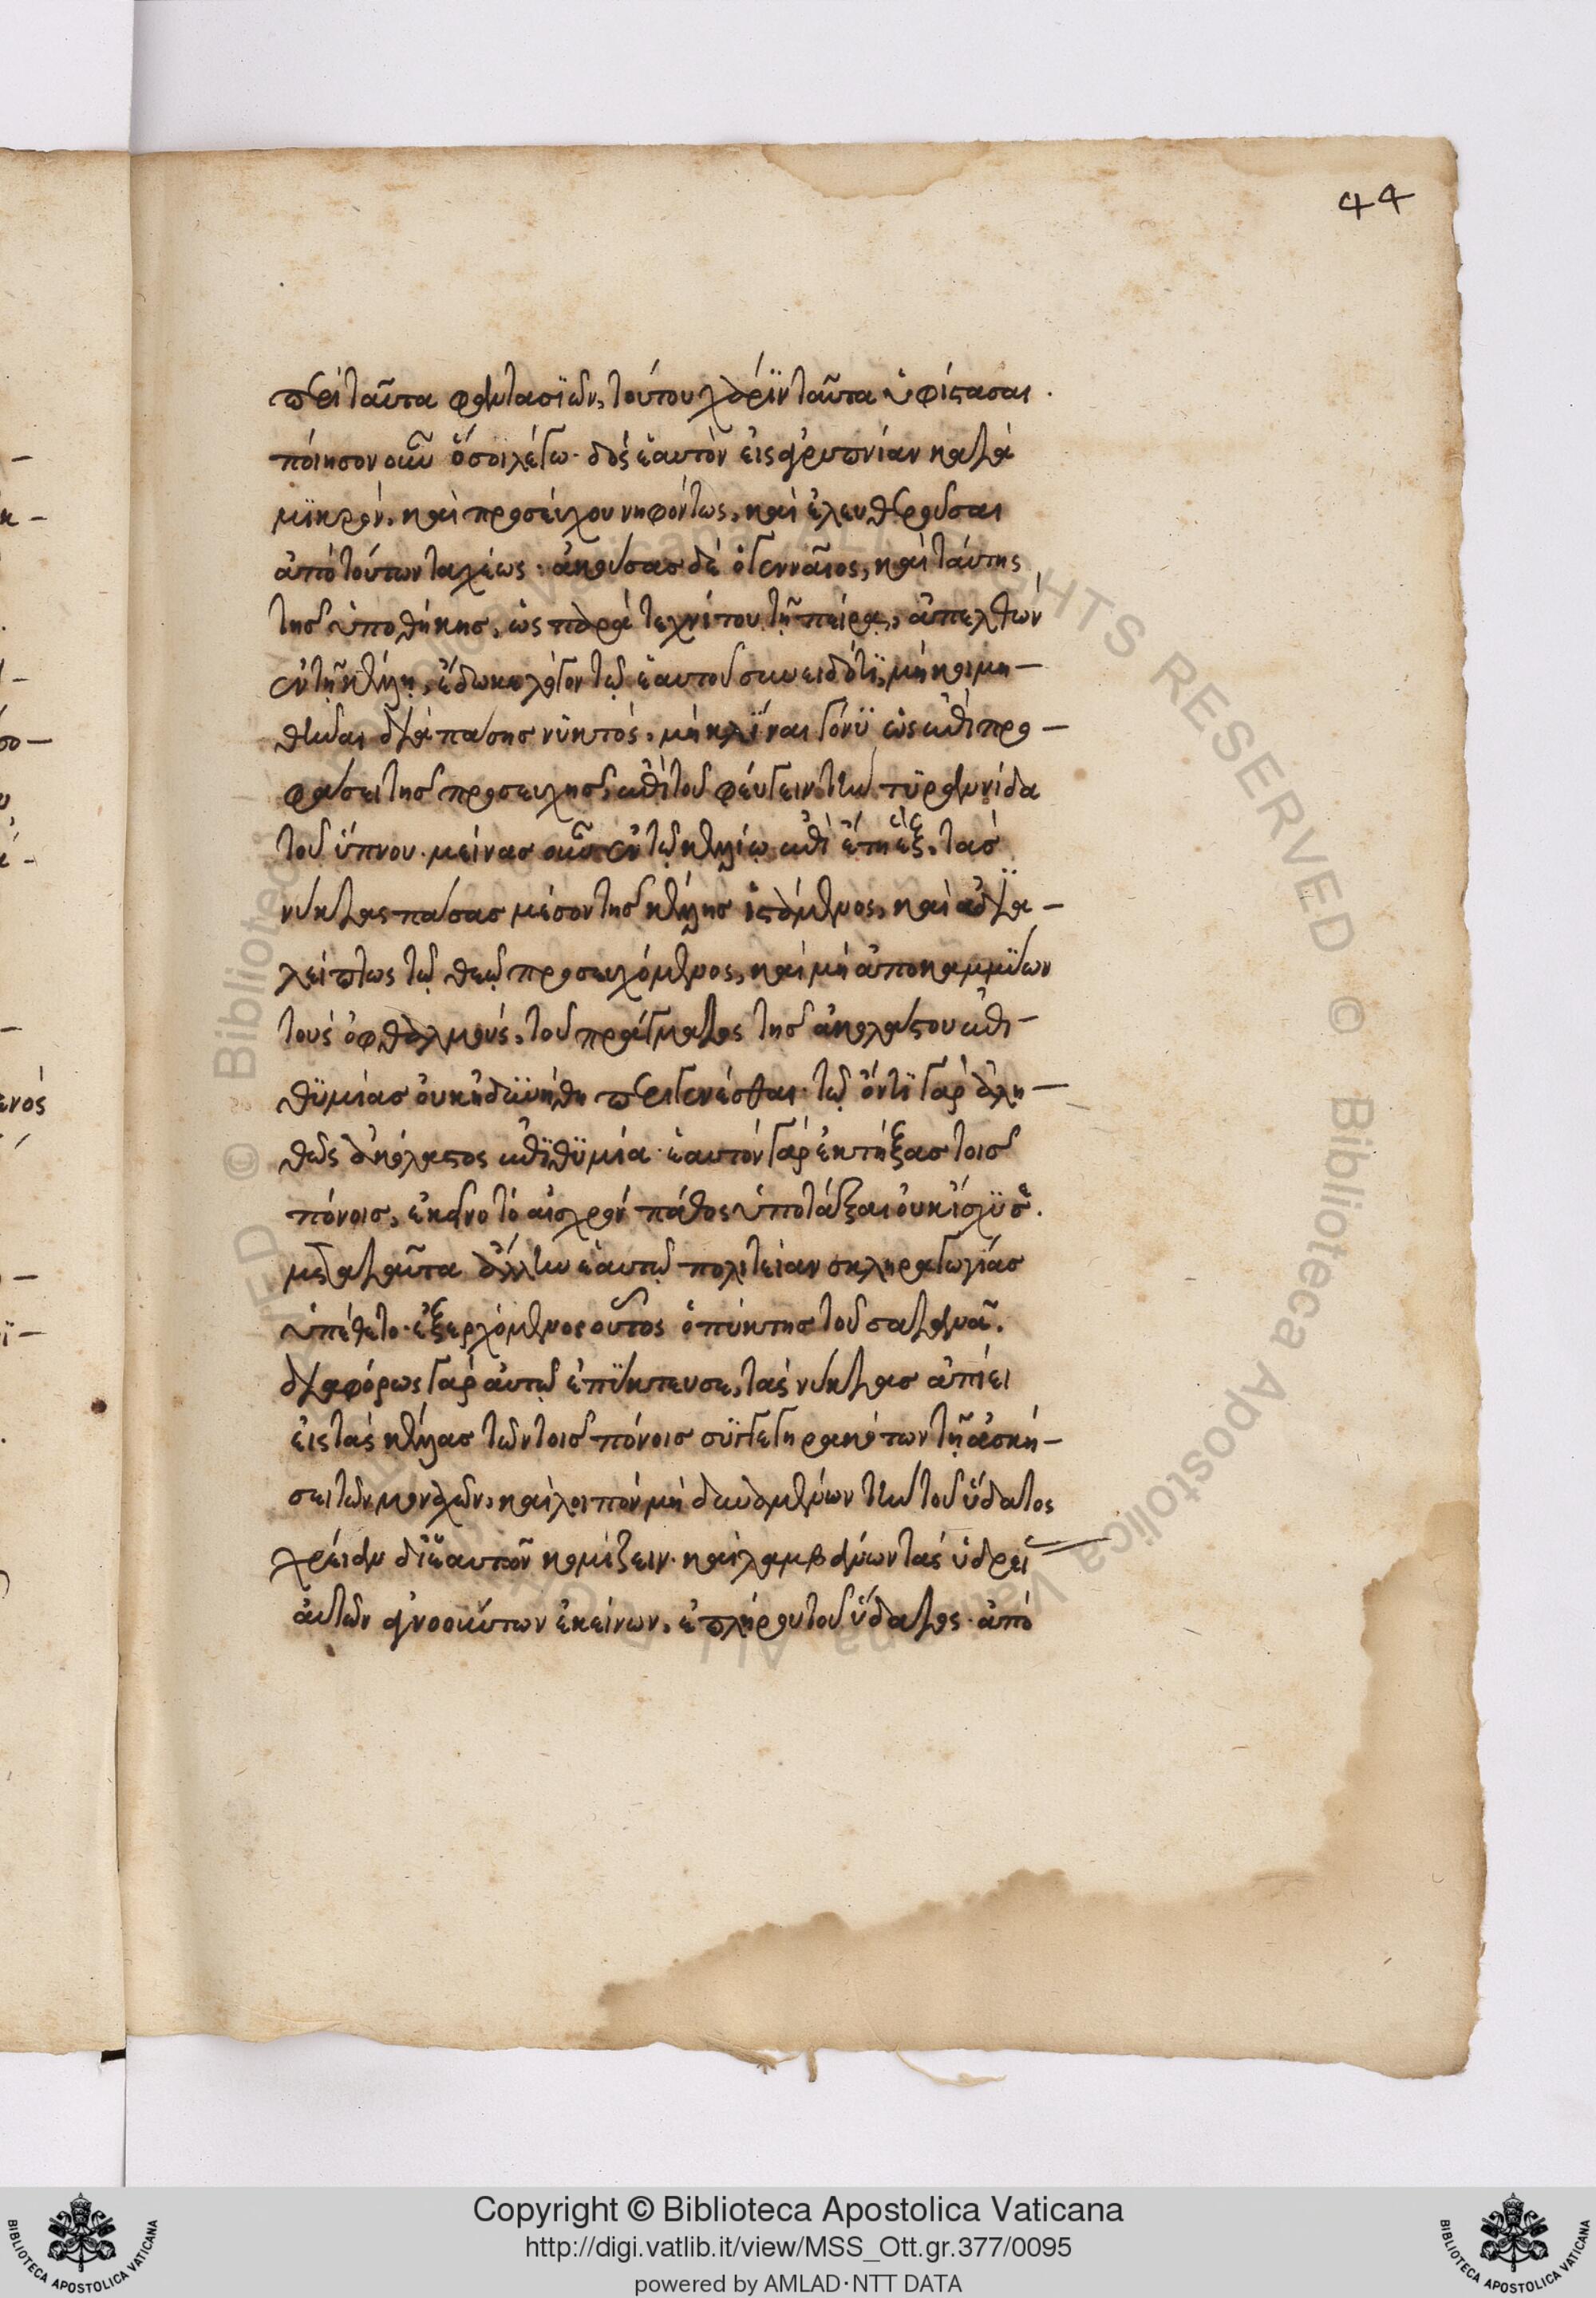 44
περὶ ταῦτα φαντασιῶν, τούτου χάριν ταῦτα ὑφίστασαι.
ποίησον οὖν ὅ σοι λέγω. δὸς ἑαυτὸν εἰς ἀγρυπνίαν κατὰ
μϊκρὸν, καὶ προσεύχου νηφόντως, καὶ ἐλευθεροῦσαι
ἀπὸ τούτων ταχέως. ἀκούσας δὲ ὁ γενναῖος, καὶ ταύτης
τῆς ὑποθήκης, ὡς παρὰ τεχνίτου τῇ πείρᾳ, ἀπελθὼν
ἐν τῇ κέλλῃ, ἔδωκε λόγον τῷ ἑαυτοῦ συνειδότϊ, μὴ κοιμη-
θῆναι διὰ πάσης νυκτὸς, μὴ κλῖναι γόνϋ ὡς ἐπὶ προ-
φάσει τῆς προσευχῆς, ἐπὶ τοῦ φεύγειν τὴν τϋραννίδα
τοῦ ὕπνου. μείνας οὖν ἐν τῷ κελλίῳ ἐπὶ ἔτη ἓξ, τὰς
νύκτας πάσας μέσον τῆς κέλλης ἱστάμενος, καὶ ἀδϊα-
λείπτως τῷ θεῷ προσευχόμενος, καὶ μὴ ἀποκαμμύων
τοὺς ὀφθαλμοὺς, τοῦ πράγματος τῆς ἀκολάστου ἐπι-
θϋμίας οὐκ ἠδϋνήθη περιγενέσθαι. τῷ ὄντϊ γὰρ ἀλη-
θῶς ἀκόλαστος ἐπϊθϋμία. ἑαυτὸν γὰρ ἐκτήξας τοῖς
πόνοις, ἐκεῖνο τὸ αἰσχρὸν πάθος ὑποτάξαι οὐκ ἴσχϋσε.
μετὰ ταῦτα ἄλλην ἑαυτῷ πολιτείαν σκληραγωγίας
ὑπέθετο. ἐξερχόμενος οὗτος ὁ πύκτης τοῦ σατανᾶ.
διαφόρως γὰρ αὐτῷ ἐπύκτευσε, τὰς νύκτας ἀπίει
εἰς τὰς κέλλας τῶν τοῖς πόνοις συγγεγηρακότων τῇ ἀσκή-
σει τῶν μοναχῶν, καὶ λοιπὸν μὴ δυναμένων τὴν τοῦ ὕδατος
χρείαν δι' ἑαυτῶν κομίζειν. καὶ λαμβάνων τὰς ὑδρεί
αὐτῶν ἀγνοούντων ἐκείνων, ἐπλήρου τοῦ ὕδατος. ἀπὸ
Copyright © Biblioteca Apostolica Vaticana
http://digi.vatlib.it/view/MSS_Ott.gr.377/0095
powered by AMLAD·NTT DATA
BIBLIOTECA APOSTOLICA VATICANA
BIBLIOTECA APOSTOLICA VATICANA